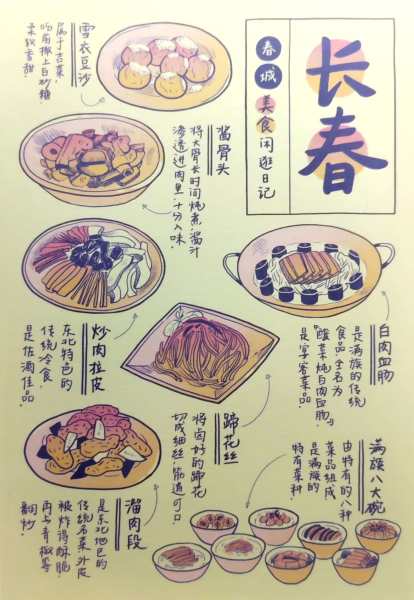 长春
春城美食闲逛日记
雪衣豆沙
属于吉菜,
吃前撒上白砂糖,
柔软香甜
酱骨头
将大骨长时间炖煮,酱汁
渗透进肉里,十分入味。
炒肉拉皮
东北特色的
传统冷食
是佐酒佳品。
白肉血肠
是满族的传统
食品,全名为
“酸菜炖白肉血肠”,
是宴客菜品。
蹄花丝
将卤好的蹄花
切成细丝,筋道可口
溜肉段
是东北地区的
传统名菜,外皮
被炸得酥脆
再与青椒等
翻炒。
满族八大碗
由特有的八种
菜品组成
是满族的
特有菜料